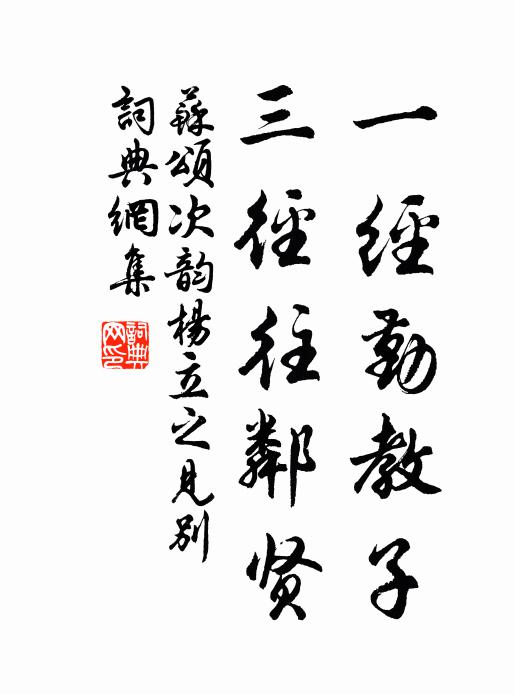 一經勤教子
三徑往鄰贤
蘇頌次韵楊立之見别
詞典網集
詞典网印